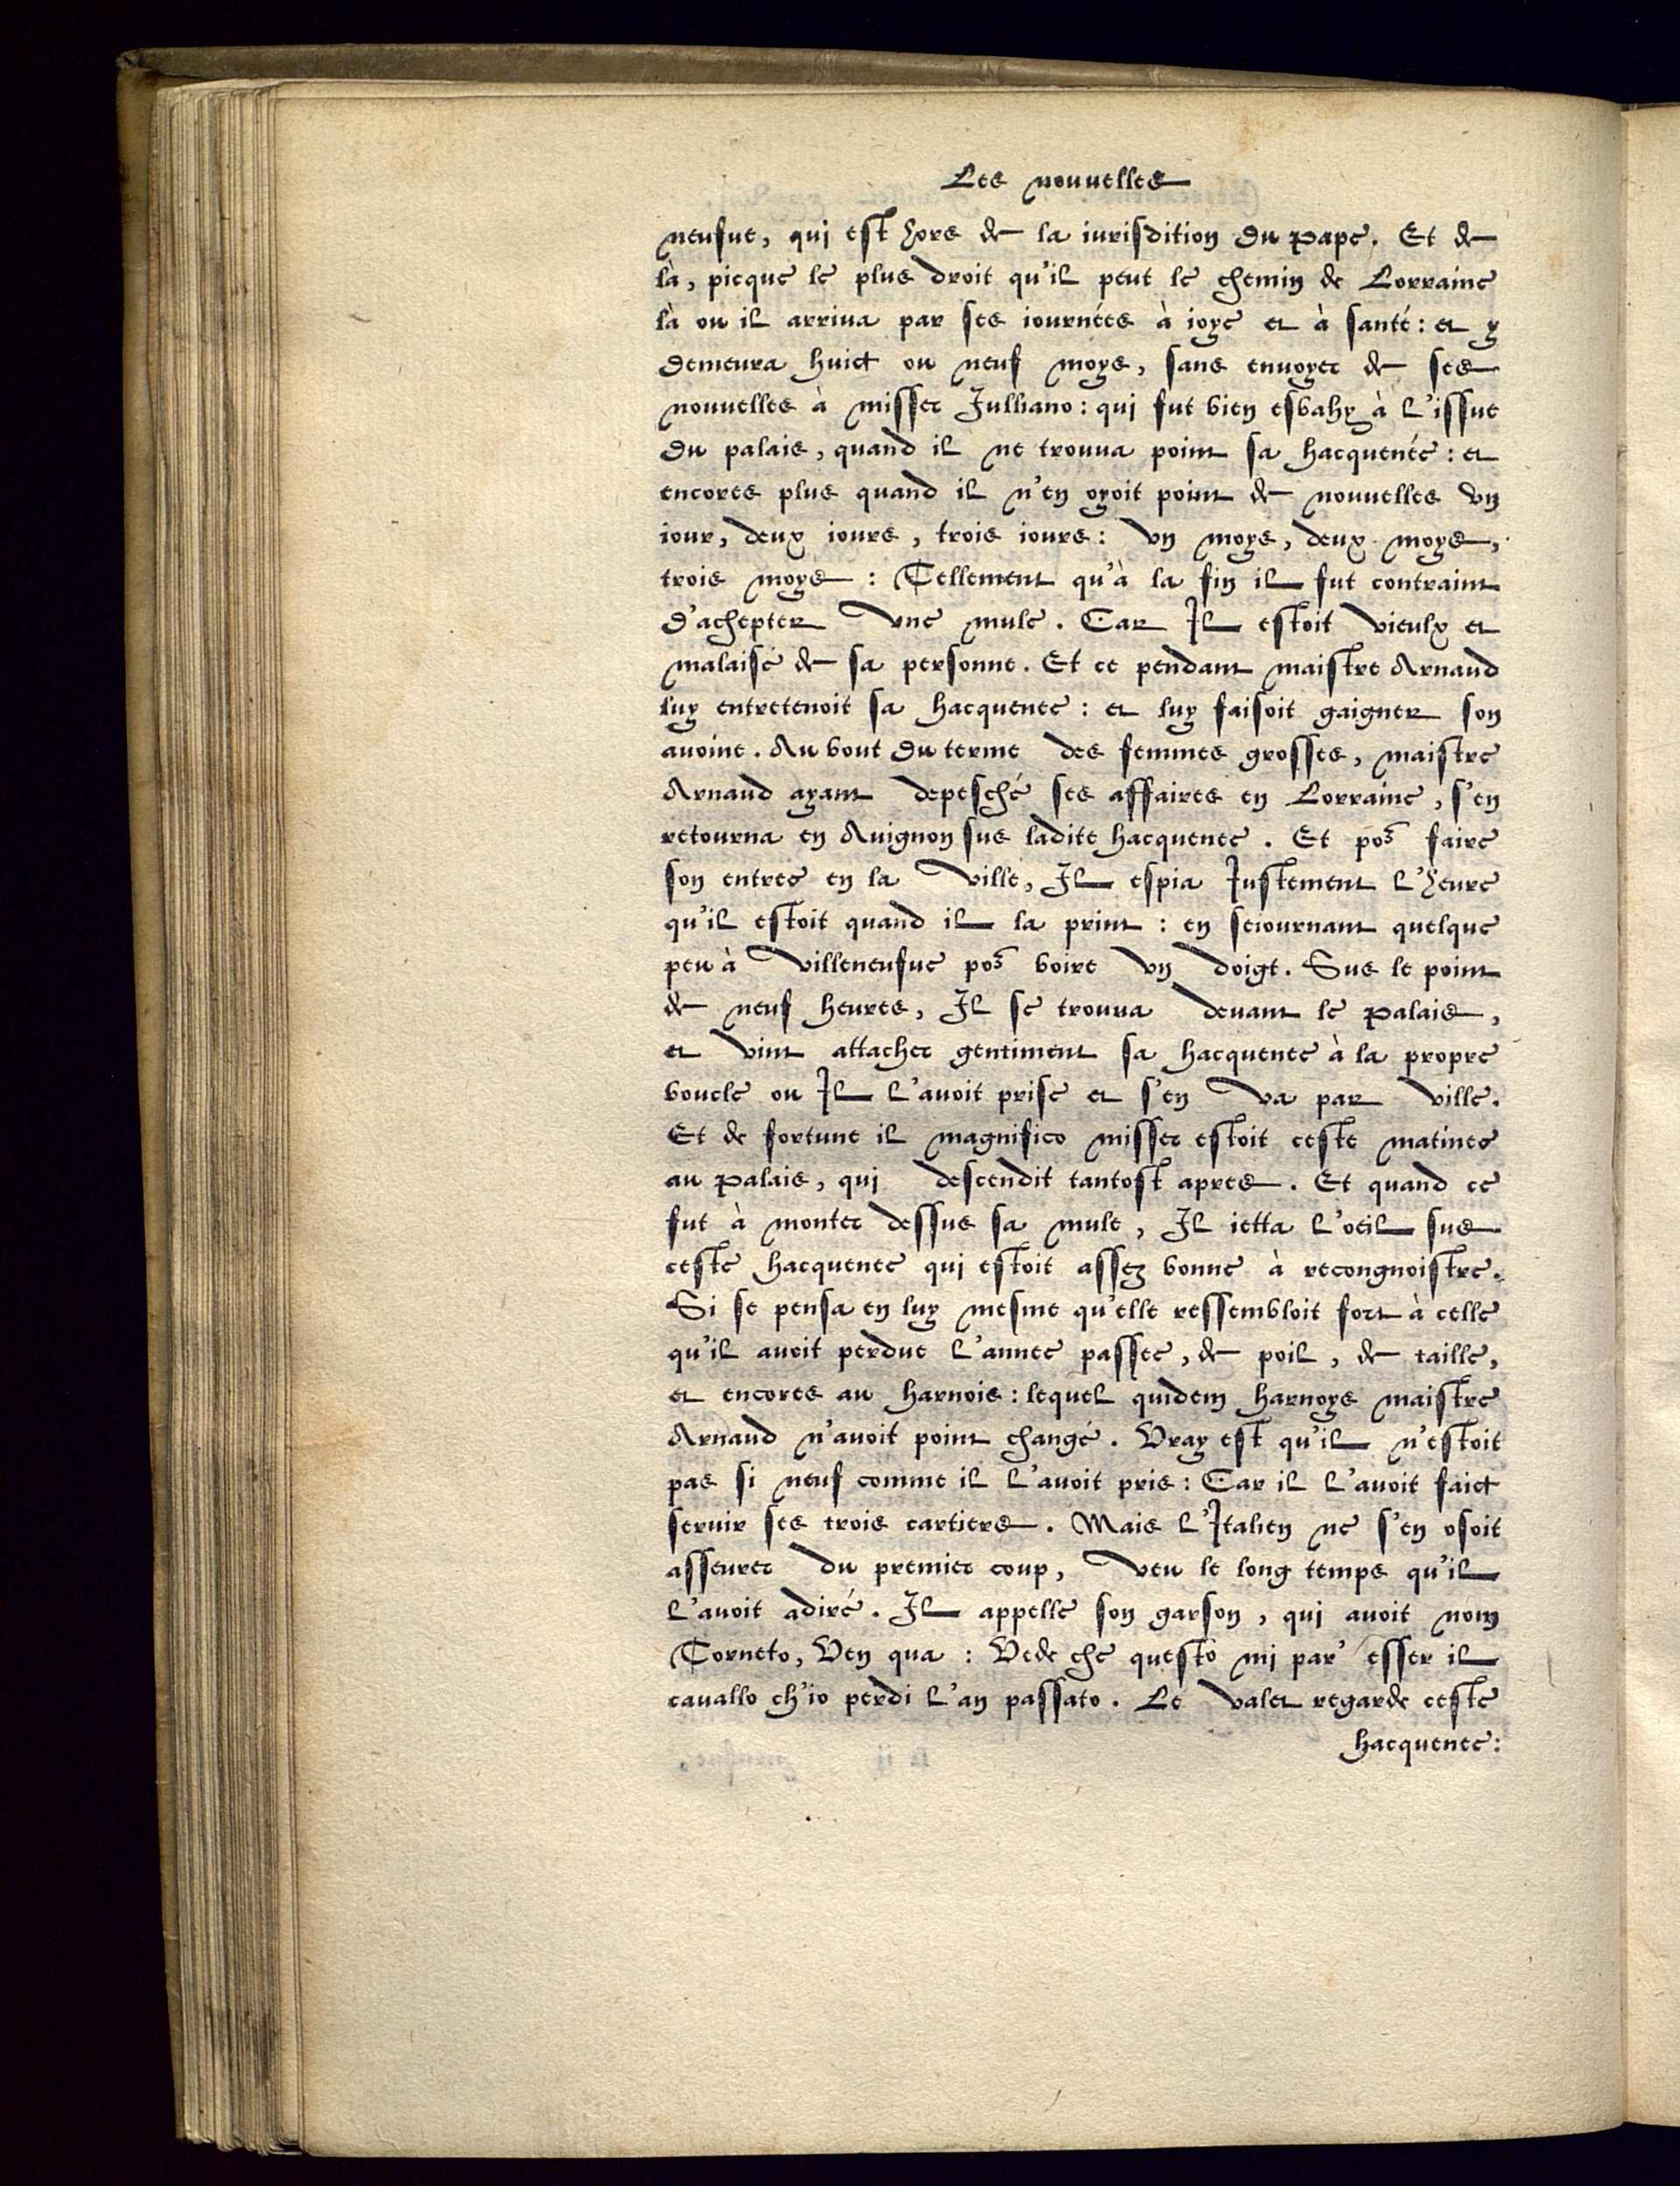 Les nouuelles
neufue, qui est hors de la iurisdition du Pape. Et de
là, picque le plus droit qu'il peut le chemin de Lorraine
là ou il arriua par ses iournées à ioye et à santé: et y
demeura huict ou neuf moys, sans enuoyer de ses
nouuelles à misser Iulliano: qui fut bien esbahy à l'issue
du palais, quand il ne trouua point sa hacquenée: et
encores plus quand il n'en oyoit point de nouuelles vn
iour, deux iours, trois iours: vn moys, deux moys,
trois moys: Tellement qu'à la fin il fut contraint
d'achepter vne mule. Car Il estoit vieulx et
malaisé de sa personne. Et ce pendant maistre Arnaud
luy entretenoit sa hacquenee: et luy faisoit gaigner son
auoine. Au bout du terme des femmes grosses, maistre
Arnaud ayant depesché ses affaires en Lorraine, s'en
retourna en Auignon sus ladite hacquenee. Et po⁹ faire
son entree en la ville, Il espia Iustement l'heure
qu'il estoit quand il la print: en seiournant quelque
peu à Villeneufue po⁹ boire vn doigt. Sus le point
de neuf heures, Il se trouua deuant le Palais,
et vint attacher gentiment sa hacquenee à la propre
boucle ou Il l'auoit prise et s'en va par ville.
Et de fortune il magnifico misser estoit ceste matinee
au Palais, qui descendit tantost apres. Et quand ce
fut à monter dessus sa mule, Il ietta l'oeil sus
ceste hacquenee qui estoit assez bonne à recongnoistre.
Si se pensa en luy mesme qu'elle ressembloit fort à celle
qu'il auoit perdue l'annee passee, de poil, de taille,
et encores au harnois: lequel quidem harnoys maistre
Arnaud n'auoit point changé. Vray est qu'il n'estoit
pas si neuf comme il l'auoit pris: Car il l'auoit faict
seruir ses trois cartiers. Mais l'Italien ne s'en osoit
asseurer du premier coup, veu le long temps qu'il
l'auoit adiré. Il appelle son garson, qui auoit nom
Torneto, Ven qua: Vede che questo mi par' esser il
cauallo ch'io perdi l'an passato. Le valet regarde ceste
hacquenee: